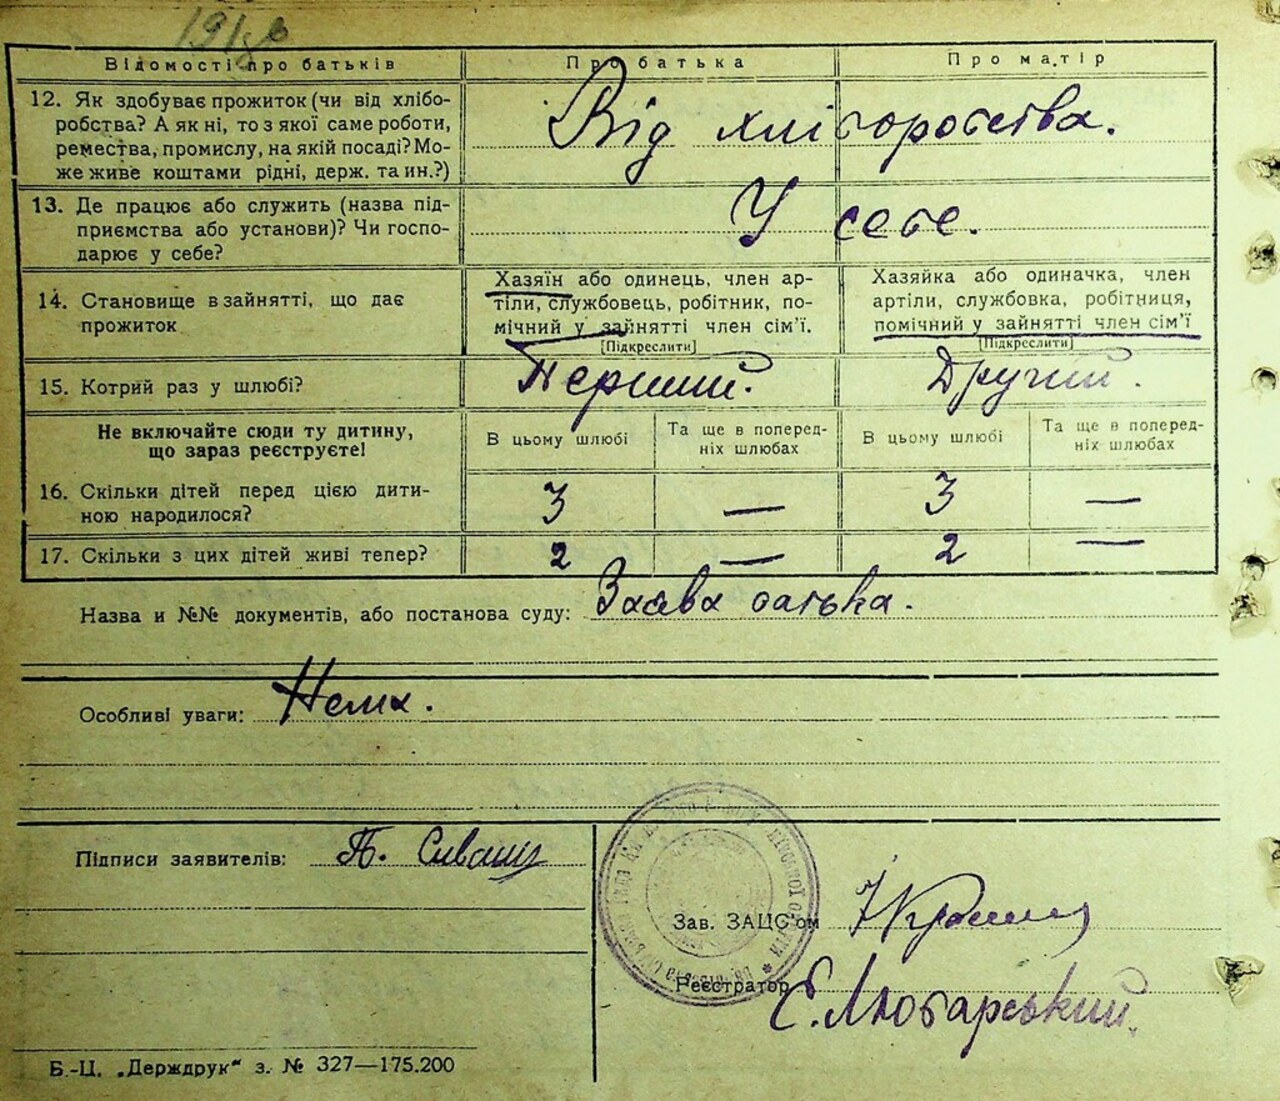 Відомості про батьків
Про батька
Про матір
12. Як здобуває прожиток (чи від хлібо-
робства? А як ні, то з якої саме роботи,
ремества, промислу, на якій посаді? Мо-
же живе коштами рідні, держ. та ин.?)
Від хліборобства.
13. Де працює або служить (назва під-
приємства або установи)? Чи госпо-
дарює у себе?
У себе.
14. Становище в зайнятті, що дає
прожиток
Хазяїн або одинець, член ар-
тіли, службовець, робітник, по-
мічний у зайнятті член сім'ї.
[Підкреслити]
Хазяйка або одиначка, член
артіли, службовка, робітниця,
помічний у зайнятті член сім'ї
[Підкреслити]
15. Котрий раз у шлюбі?
Перший.
Другий.
Не включайте сюди ту дитину,
що зараз реєструєте!
В цьому шлюбі
Та ще в поперед-
ніх шлюбах
В цьому шлюбі
Та ще в поперед-
ніх шлюбах
16. Скільки дітей перед цією дити-
ною народилося?
3
—
3
—
17. Скільки з цих дітей живі тепер?
2
—
2
—
Назва и №№ документів, або постанова суду: Заява батька.
Особливі уваги: Нема.
Підписи заявителів: П. Сиваш
Зав. ЗАЦС'ом
Реєстратор Є. Лютарський.
Б.-Ц. „Держдрук" з. № 327—175.200